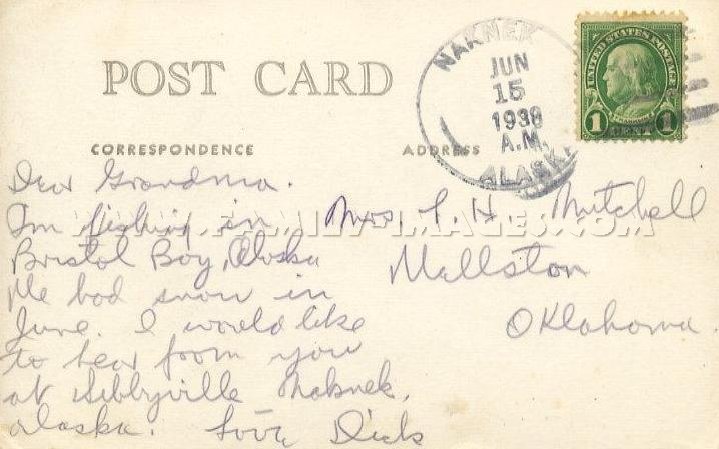 NAKNEK
JUN
15
1938
A.M.
ALASK.
UNITED STATES POSTAGE
FRANKLIN
1 CENT 1
POST CARD
CORRESPONDENCE
ADDRESS
Dear Grandma.
Im fishing in
Bristol Bay, Alaska
We had snow in
June. I would like
to hear from you
at Libbyville Naknek,
Alaska. Love Dick
Mrs. L. H. Mitchell
Millston
Oklahoma.
WWW.FAMILY-IMAGES.COM